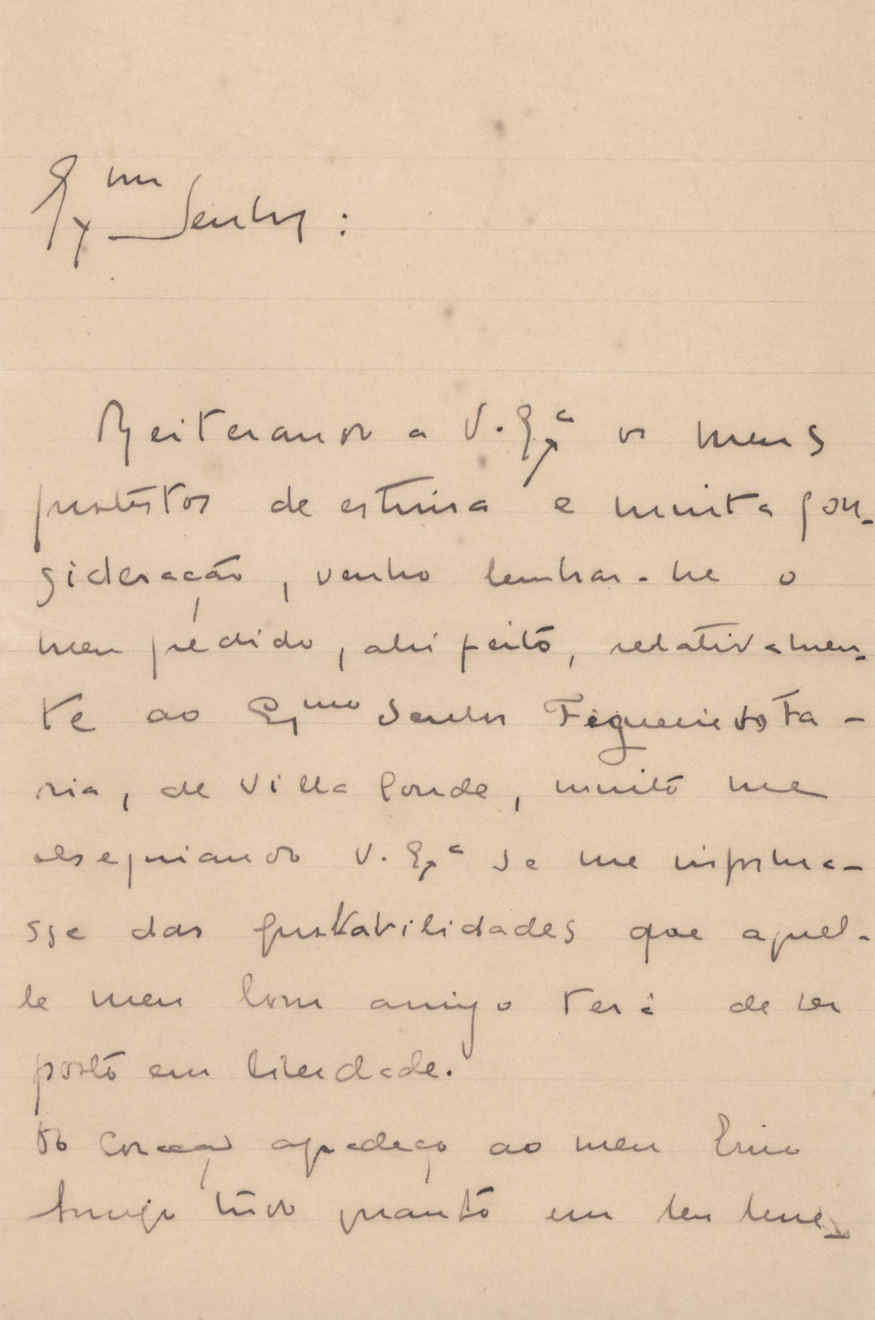 Exmo Senhor:
Reiterando a V. Exª os meus
protestos de estima e muita con-
sideração, venho lembrar-lhe o
meu pedido, ahi feito, relativamen-
te ao Exmo Senhor Figueiredo Fa-
ria, de Villa Conde, muito me
obsequiando V. Exª se me informa-
sse das probabilidades que aquel-
le meu bom amigo terá de ser
posto em liberdade.
Do coração agradeço ao meu Exmo
Amigo tudo quanto em seu bene-